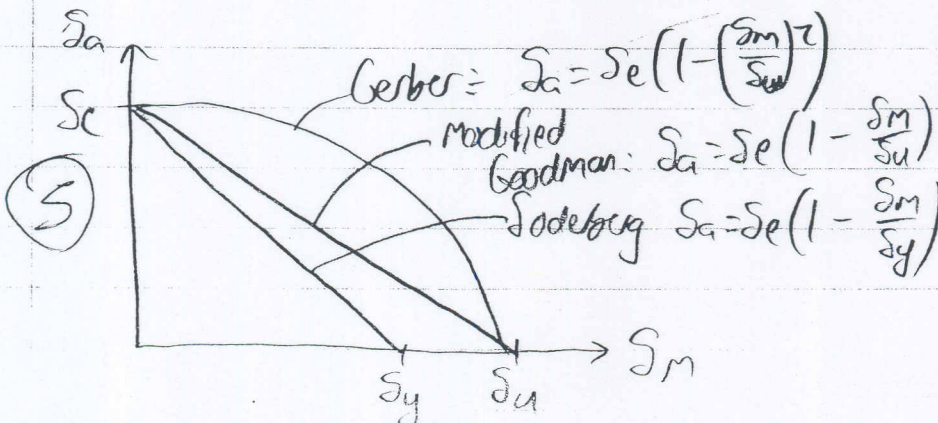 Sa
Se
Gerber: Sa = Se(1 - (Sm/Su)²)
Modified
Goodman: Sa = Se(1 - Sm/Su)
Soderberg Sa = Se(1 - Sm/Sy)
5
Sy Su Sm